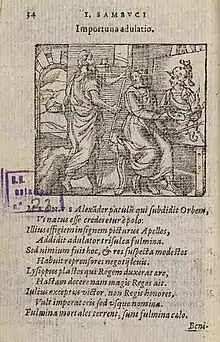 34 I. SAMBVCI
Importuna adulatio.
Alexāder patulū qui subdidit Orbem,
Vt natus esse crederetur è polo:
Illius effigiem insignem picturus Apelles,
Addidit adulator trisulca fulmina.
Sed nimium fuit hoc, & res suspecta modestos
Habuit reprensores negotij leuis.
Lysippus plastes qui Regem duxerat ære,
Hastam decere nam magis Reges ait.
Iulius excepto victor non Regis honores,
Vult imperatoris sed usque nomina.
Fulmina mortales terrent, sunt fulmina cælo.
Beni-